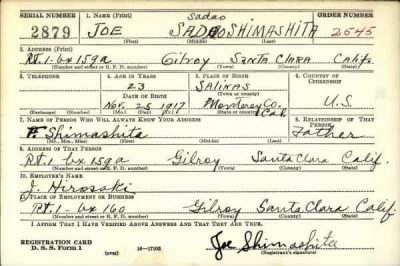 SERIAL NUMBER
1. NAME (Print)
ORDER NUMBER
sadao
2879
JOE SADAO SHIMASHITA
2545
(First) (Middle) (Last)
2. ADDRESS (Print)
Rt.1-bx 159a Gilroy SANTA CLARA Calif.
(Number and street or R. F. D. number) (Town) (County) (State)
3. TELEPHONE
4. AGE IN YEARS
5. PLACE OF BIRTH
6. COUNTRY OF CITIZENSHIP
23
SALINAS
DATE OF BIRTH
(Town or county)
Nov. 25 1917
Monterey Co. Cal.
U.S.
(Exchange) (Number)
(Mo.) (Day) (Yr.)
(State or country)
7. NAME OF PERSON WHO WILL ALWAYS KNOW YOUR ADDRESS
8. RELATIONSHIP OF THAT PERSON
Shimashita
Father
(Mr., Mrs., Miss) (First) (Middle) (Last)
9. ADDRESS OF THAT PERSON
Rt.1 bx 159a Gilroy Santa Clara Calif.
(Number and street or R. F. D. number) (Town) (County) (State)
10. EMPLOYER'S NAME
J. Hirosaki
11. PLACE OF EMPLOYMENT OR BUSINESS
Rt.1-bx 160 Gilroy Santa Clara Calif
(Number and street or R. F. D. number) (Town) (County) (State)
I AFFIRM THAT I HAVE VERIFIED ABOVE ANSWERS AND THAT THEY ARE TRUE.
REGISTRATION CARD
D. S. S. Form 1
(over)
16-17105
Joe Shimashita
(Registrant's signature)